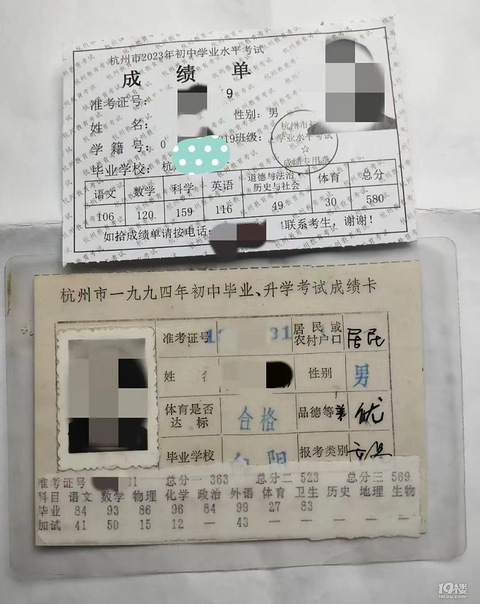 杭州市2023年初中学业水平考试
成 绩 单
准考证号： 9
姓 名： 性别：男
学籍号：0 019班级：
毕业学校：杭
杭州市
学业水平考试
成绩卡用章
语文 数学 科学 英语 道德与法治、历史与社会 体育 总分
106 120 159 116 49 30 580
如拾成绩单请按电话 联系考生，谢谢！
杭州市一九九四年初中毕业、升学考试成绩卡
准考证号 31 居民或农村户口 居民
姓 名 性别 男
体育是否达标 合格 品德等第 优
毕业学校 阳 报考类别
准考证号 31 总分一363 总分二523 总分三569
科目 语文 数学 物理 化学 政治 外语 体育 卫生 历史 地理 生物
毕业 84 93 86 96 84 99 27 83
加试 41 50 15 12 — 43
19楼
19lou.com